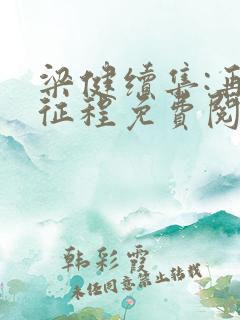 梁健续集:再
征程免费阅
韩彩霞
未经同意禁止转载